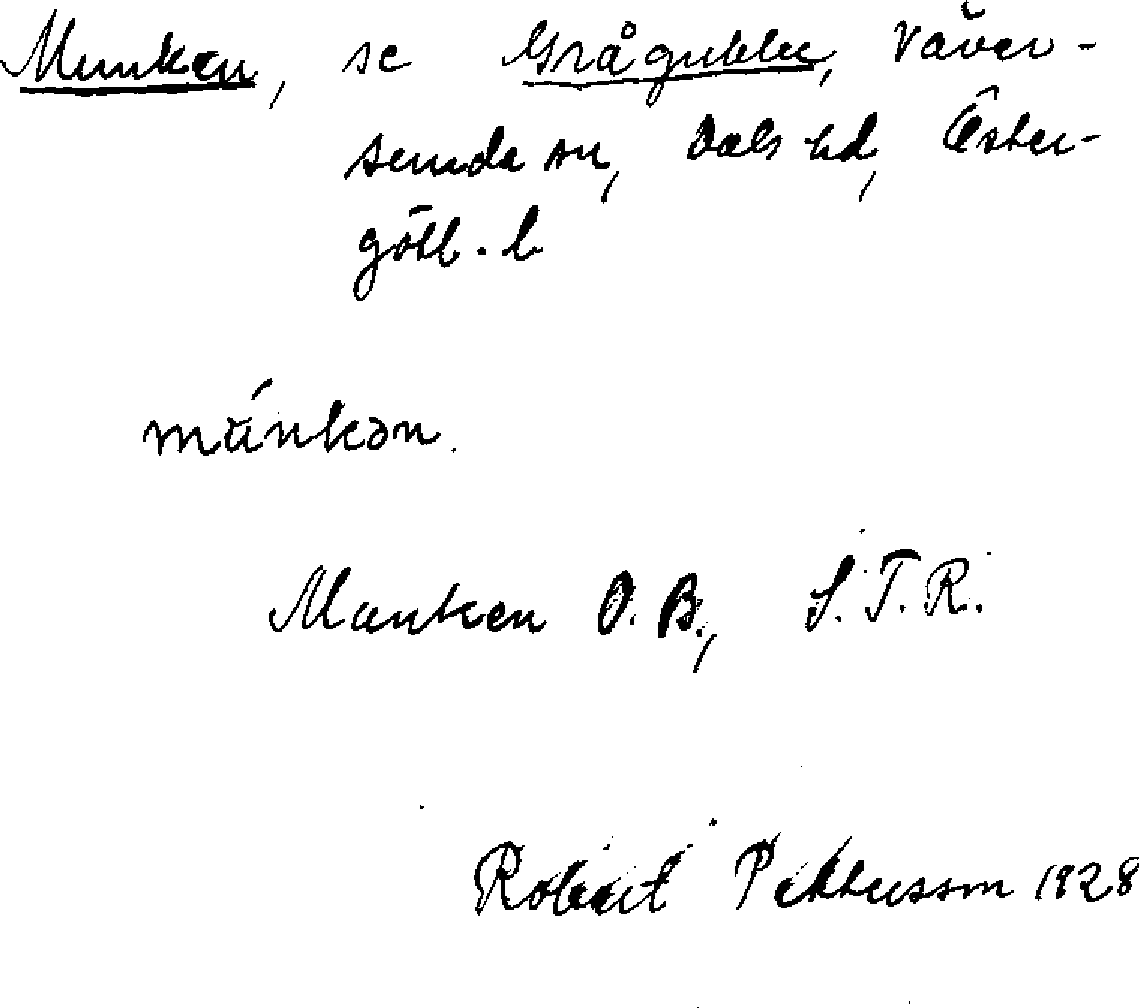 Munken, se Grågubbe, Väver-
sunda sn, Dals hd, Öster-
götl. l
múnkən.
Munken O.B., S.T.R.
Robert Pettersson 1928